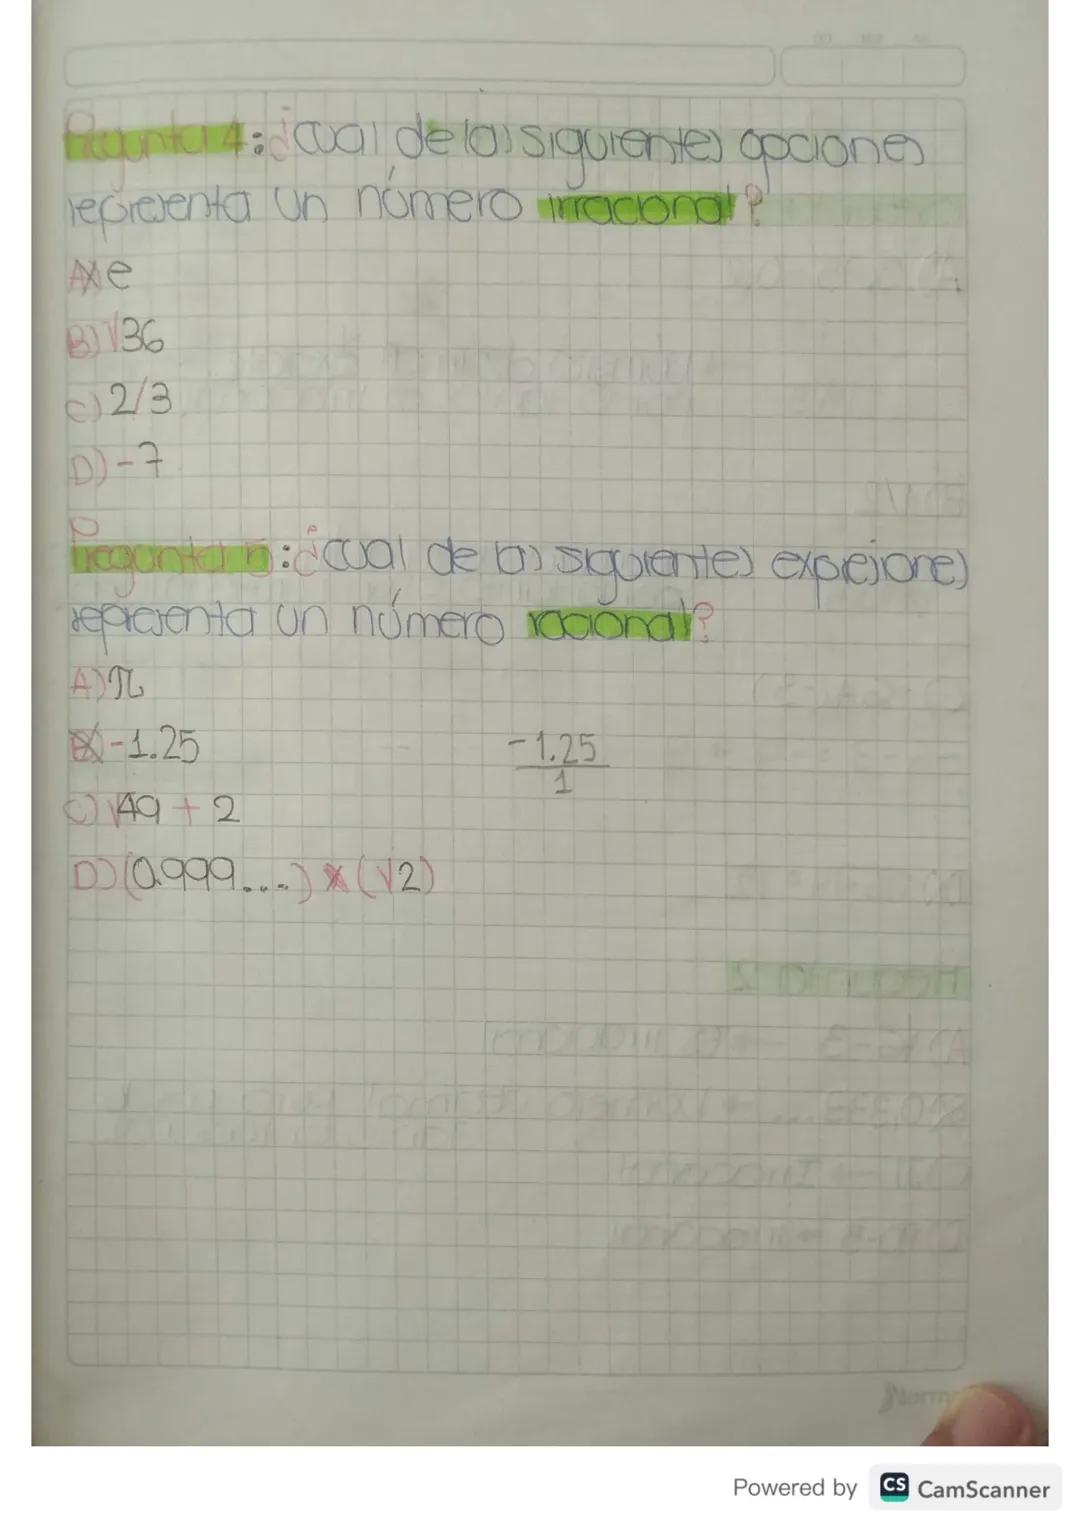 Pregunta 4: ¿cual de las siguientes opciones
representa un número irracional?
A) e
B) √36
C) 2/3
D) -7
Pregunta 5: ¿cual de las siguientes expresiones
representa un número racional?
A) π
B) -1.25
-1.25
1
C) √49 + 2
D) (0.999...) x (√2)
Norm
Powered by CS CamScanner